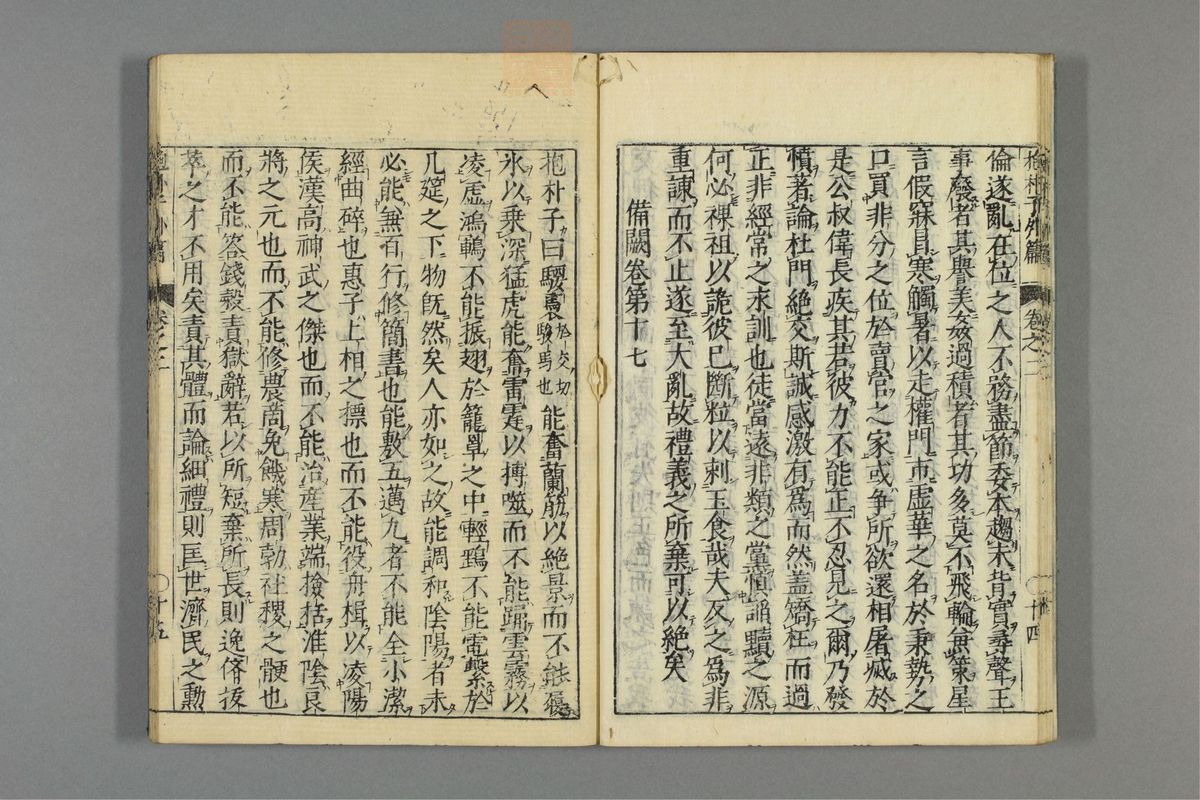 抱朴子外篇 卷之二 十四
倫遂亂在位之人不務盡節委本趨末背實尋聲王
事廢者其譽美姦過積者其功多莫不飛輪無策星
言假寐冒寒觸暑以走權門市虛華之名於秉勢之
口買非分之位於賣官之家或爭所欲還相屠滅於
是公叔偉長疾其若彼力不能正不忍見之爾乃發
憤著論杜門絶交斯誠感激有爲而然蓋矯枉而過
正非經常之永訓也徒當遠非類之黨慎謟黷之源
何必裸袒以詭彼已斷粒以刺玉食哉夫反之爲非
重諫而不止遂至大亂故禮義之所棄可以絶矣
備闕卷第十七
抱朴子曰騕褭於交切駿馬也能奮蘭筋以絶景而不能履
氷以乗深猛虎能奮雷霆以搏噬而不能踊雲霧以
凌虛鴻鶤不能振翅於籠罩之中輕鷂不能電擊於
几筵之下物旣然矣人亦如之故能調和陰陽者未
必能無有行修簡書也能敷五邁九者不能全小潔
經曲碎也惠子上相之摽也而不能役舟楫以凌陽
侯漢高神武之傑也而不能治産業端撿括淮陰良
將之元也而不能修農商免飢寒周勃社稷之骾也
而不能答錢穀責獄辭若以所短棄所長則逸儕拔
萃之才不用矣責其體而論細禮則匡世濟民之勳
抱朴子外篇 卷之二 十五